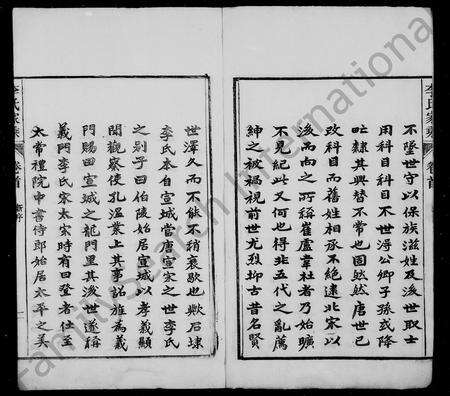 不墜世守以保族滋姓及後世取士
用科目科目不世得公卿子孫或降
隸其興替不常也固然然唐世已
改科目而舊姓相承不絕逮北宋以
後而向之所稱崔盧韋杜者乃始曠
不見紀此又何也得非五代之亂薦
紳之被禍視前世尤烈抑古昔名賢
世澤久而不能不稍衰歇也歟石埭
李氏本自宣城當唐宣宗之世李氏
之別子曰伯陵始居宣城以孝義顯
聞觀察使孔溫業上其事詔旌為義
門賜田宣城之龍門里其後世遂稱
義門李氏宋太宗時有曰登者仕至
太常禮院中書侍郎始居太平之美
李氏家乘 卷首
李氏家乘 卷首 序 一
FamilySearch International